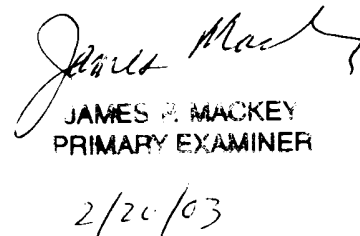 James Mackey
JAMES P. MACKEY
PRIMARY EXAMINER
2/20/03